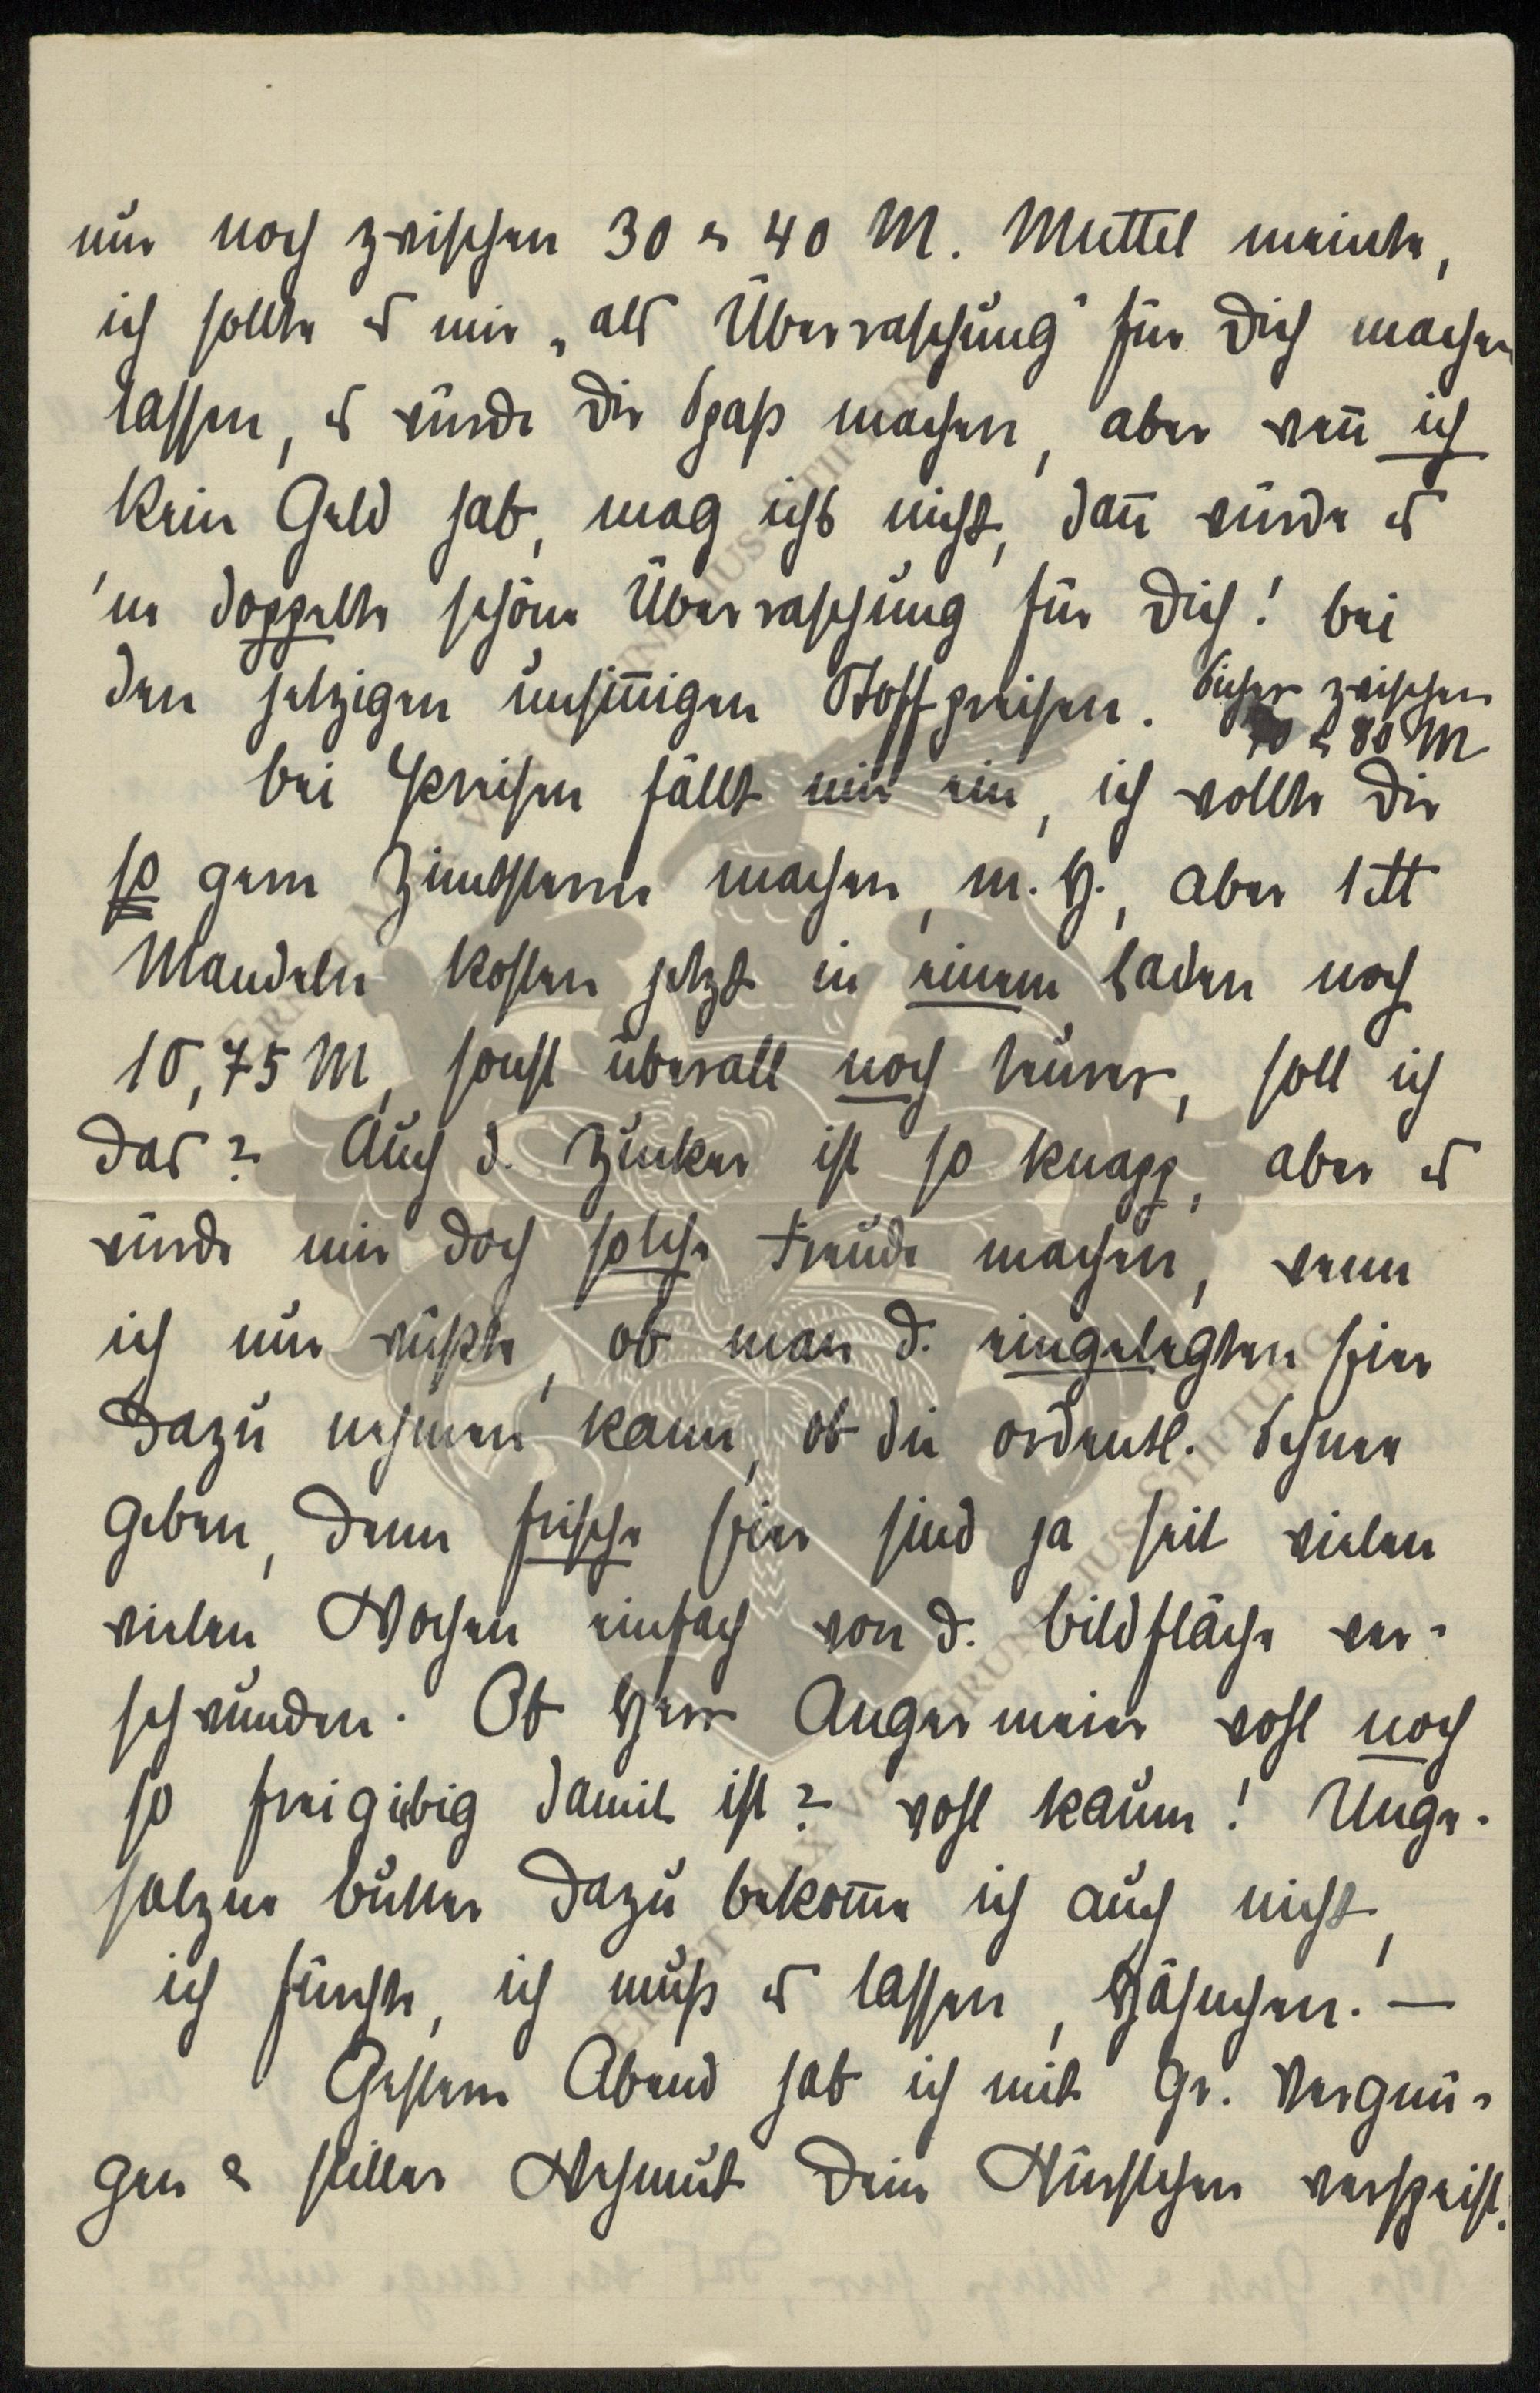 nur noch zwischen 30 & 40 M. Muttel meinte,
ich sollte es mir „als Überraschung" für Dich machen
lassen, es würde Dir Spaß machen, aber wen̄ ich
kein Geld hab, mag ichs nicht, dan̄ würde es
'ne doppelte schöne Überraschung für Dich! bei
den jetzigen unsin̄igen Stoffpreisen. Sicher zwischen
70 & 80 M
bei Preisen fällt mir ein, ich wollte Dir
so gern Zimtsterne machen, m. H., aber 1 ℔
Mandeln kosten jetzt in einem Laden noch
10,75 M, sonst überall noch teurer, soll ich
das? Auch d. Zucker ist so knapp, aber es
würde mir doch solche Freude machen, wenn
ich nur wüßte, ob man d. eingelegten Eier
dazu nehmen kann, ob die ordentl. Schnee
geben, denn frische Eier sind ja seit vielen
vielen Wochen einfach von d. Bildfläche ver-
schwunden. Ob Herr Angermeier wohl noch
so freigiebig damit ist? wohl kaum! Unge-
salzne Butter dazu bekom̄e ich auch nicht,
ich fürchte, ich muß es lassen, Häschen. —
Gestern Abend hab ich mit gr. Vergnü-
gen & stiller Wehmut Dein Würstchen verspeist.
ERNST MAX VON GRUNELIUS-STIFTUNG
ERNST MAX VON GRUNELIUS STIFTUNG